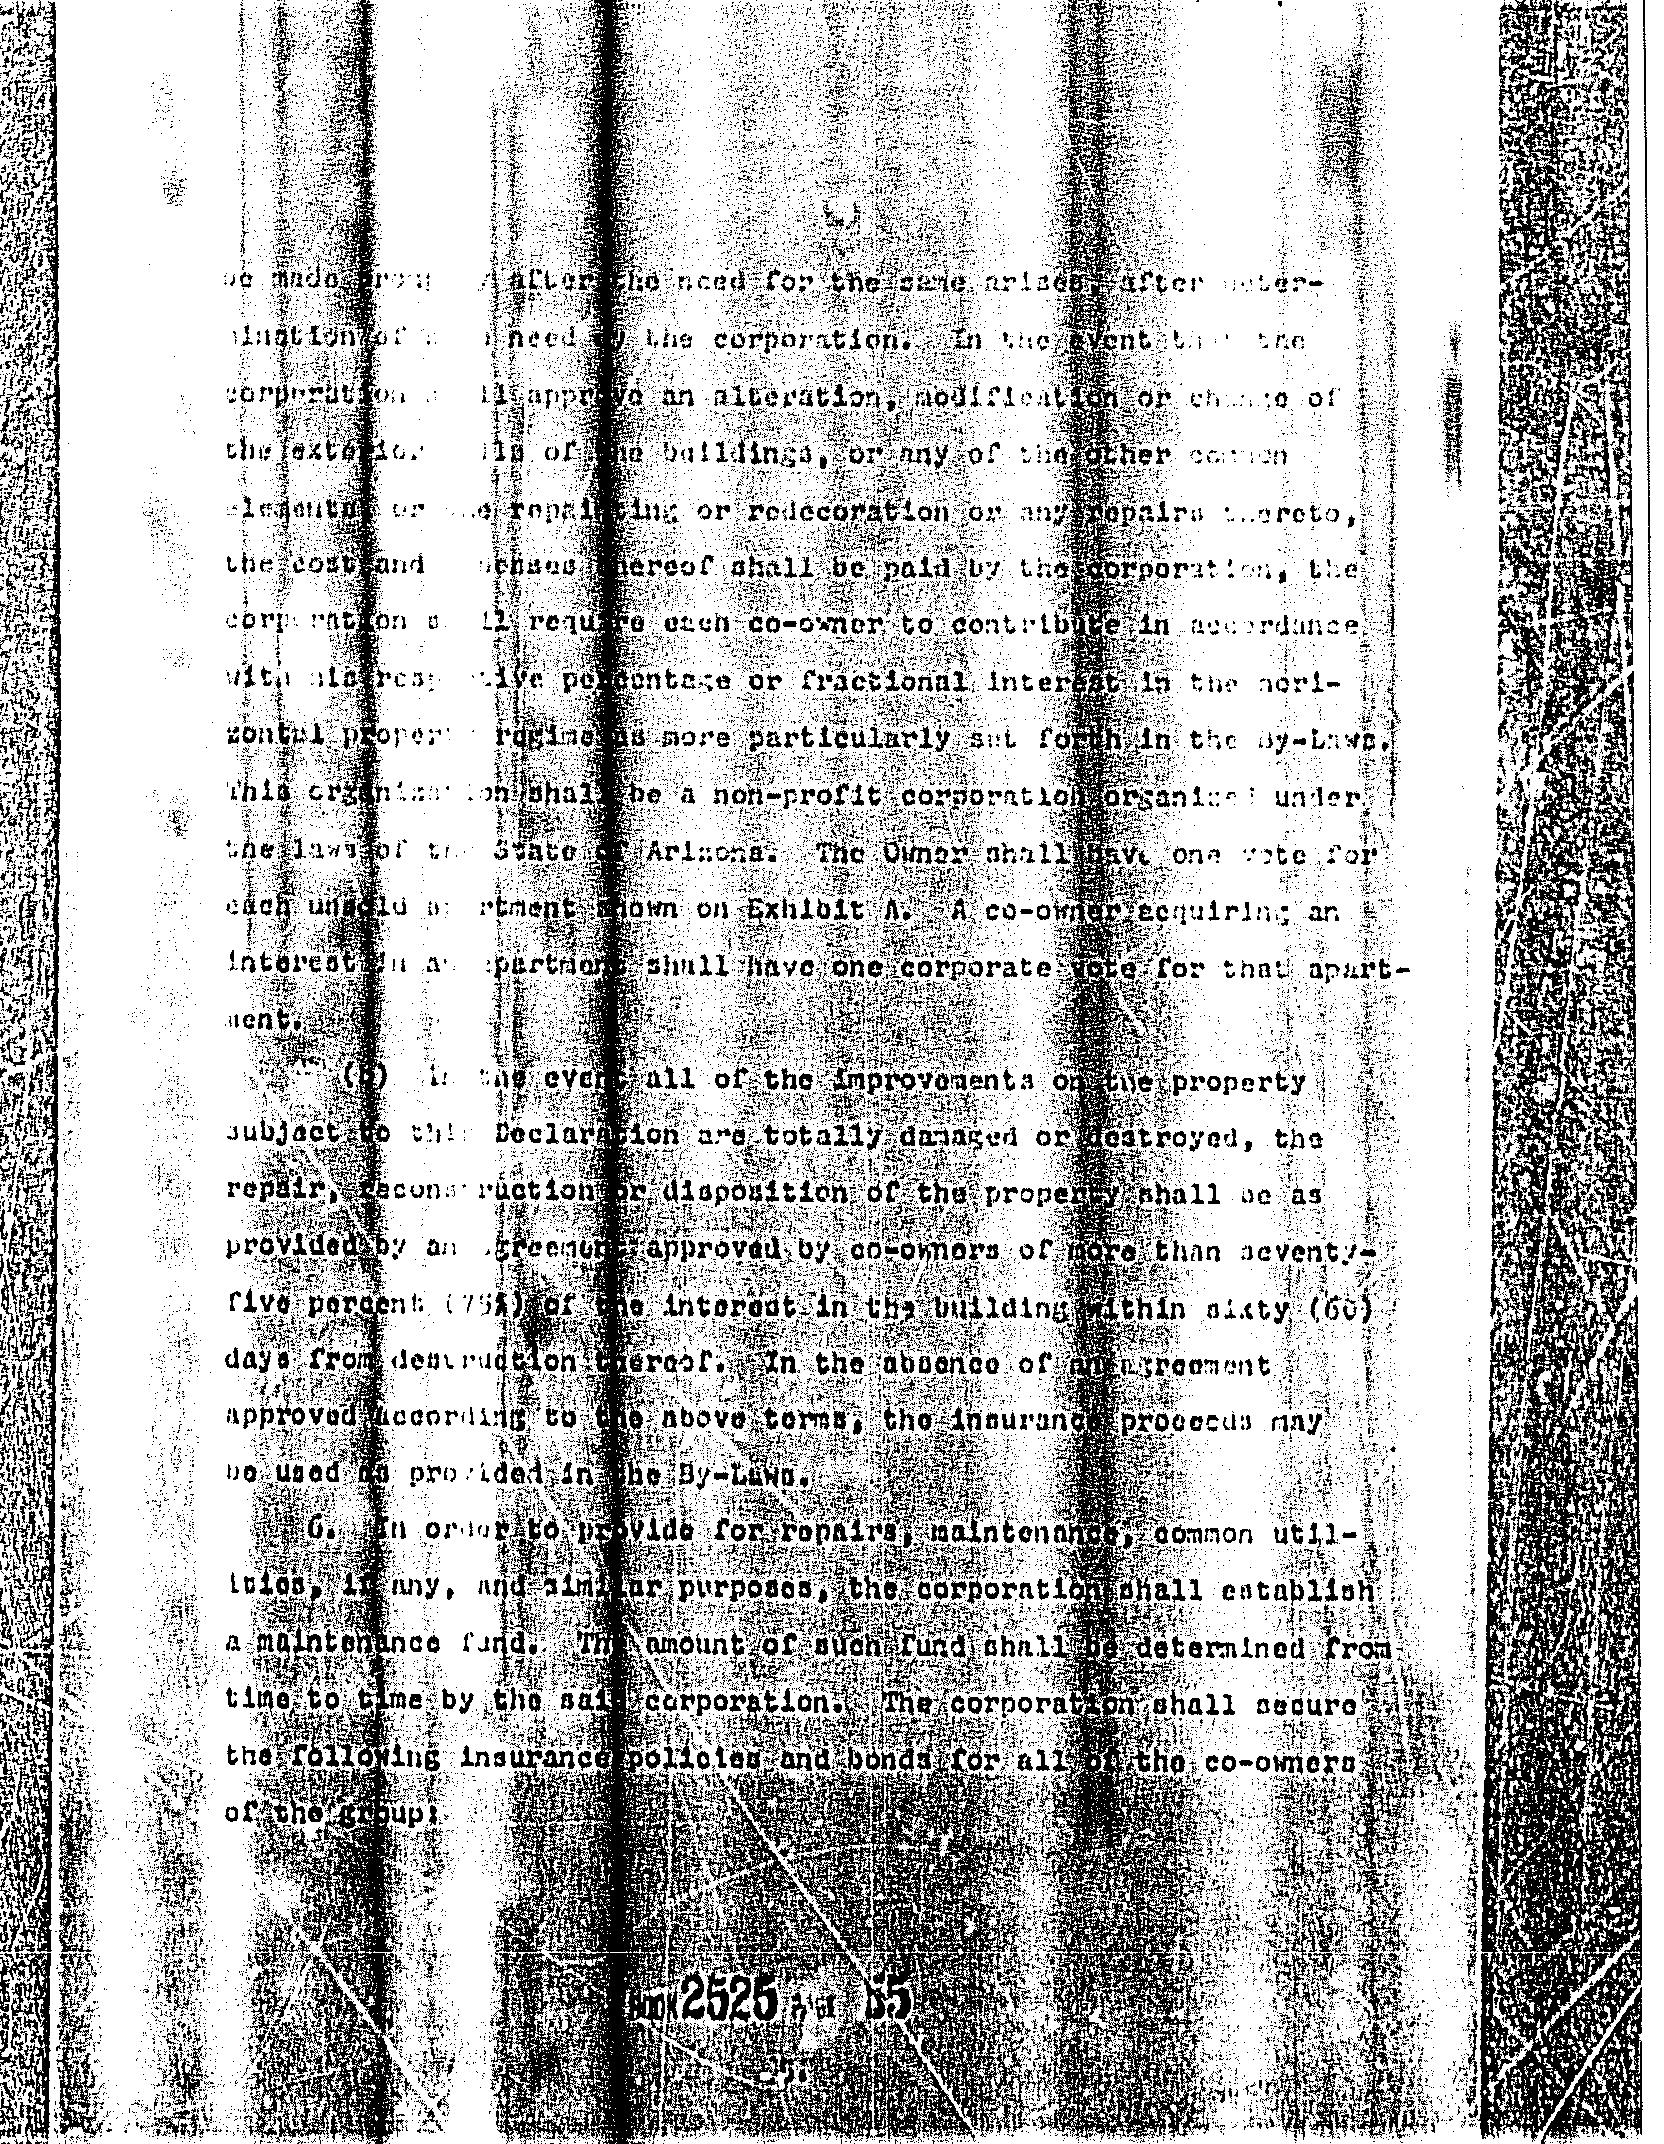 be made promptly after the need for the same arises, after deter-
mination of such need by the corporation. In the event that the
corporation shall approve an alteration, modification or change of
the exterior walls of the buildings, or any of the other common
elements, or the repainting or redecoration or any repairs thereto,
the cost and expenses thereof shall be paid by the corporation, the
corporation shall require each co-owner to contribute in accordance
with his respective percentage or fractional interest in the hori-
zontal property regime as more particularly set forth in the By-Laws.
This organization shall be a non-profit corporation organized under
the laws of the State of Arizona. The Owner shall have one vote for
each unsold apartment shown on Exhibit A. A co-owner acquiring an
interest in an apartment shall have one corporate vote for that apart-
ment.
In the event all of the improvements on the property
subject to this Declaration are totally damaged or destroyed, the
repair, reconstruction or disposition of the property shall be as
provided by an agreement approved by co-owners of more than seventy-
five percent (75%) of the interest in the building within sixty (60)
days from destruction thereof. In the absence of an agreement
approved according to the above terms, the insurance proceeds may
be used as provided in the By-Laws.
6. In order to provide for repairs, maintenance, common util-
ities, if any, and similar purposes, the corporation shall establish
a maintenance fund. The amount of such fund shall be determined from
time to time by the said corporation. The corporation shall secure
the following insurance policies and bonds for all of the co-owners
of the group:
BOOK 2525